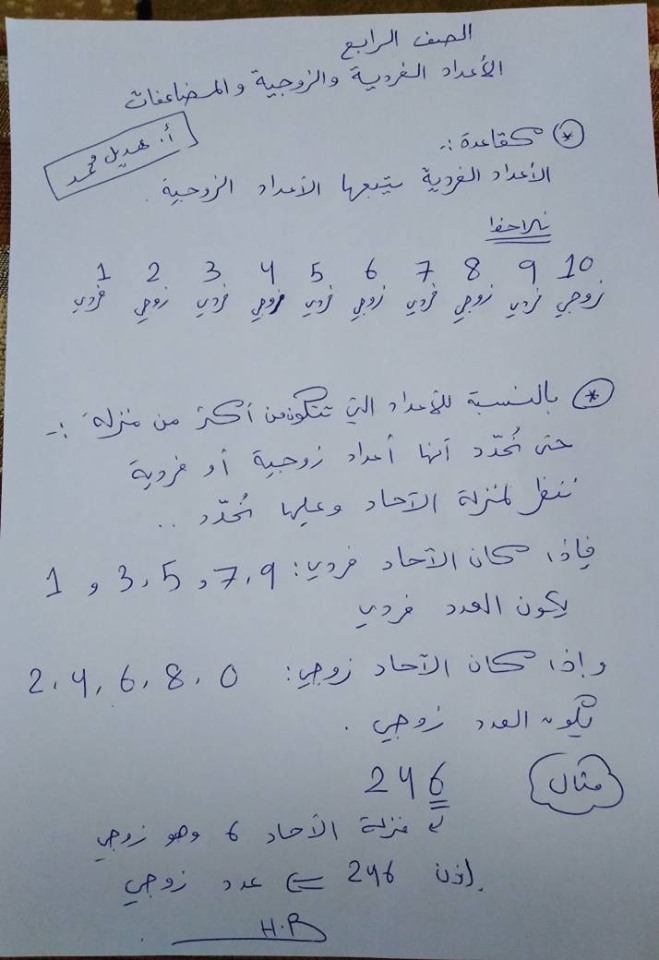 الصف الرابع
الأعداد الفردية والزوجية والمضاعفات
أ. هديل محمد
* كقاعدة :-
الأعداد الفردية يتبعها الأعداد الزوجية .
نلاحظ
1 2 3 4 5 6 7 8 9 10
فردي زوجي فردي زوجي فردي زوجي فردي زوجي فردي زوجي
* بالنسبة للأعداد التي تتكون من أكثر من منزلة :-
حتى نُحدّد أنها أعداد زوجية أو فردية
ننظر لمنزلة الآحاد وعليها نُحدّد ..
فإذا كان الآحاد فردي : 1 و 3، 5 و 7، 9
يكون العدد فردي
وإذا كان الآحاد زوجي : 2، 4، 6، 8، 0
يكون العدد زوجي .
مثال
246
منزلة الآحاد 6 وهو زوجي
إذن 246 ⇐ عدد زوجي
H.R